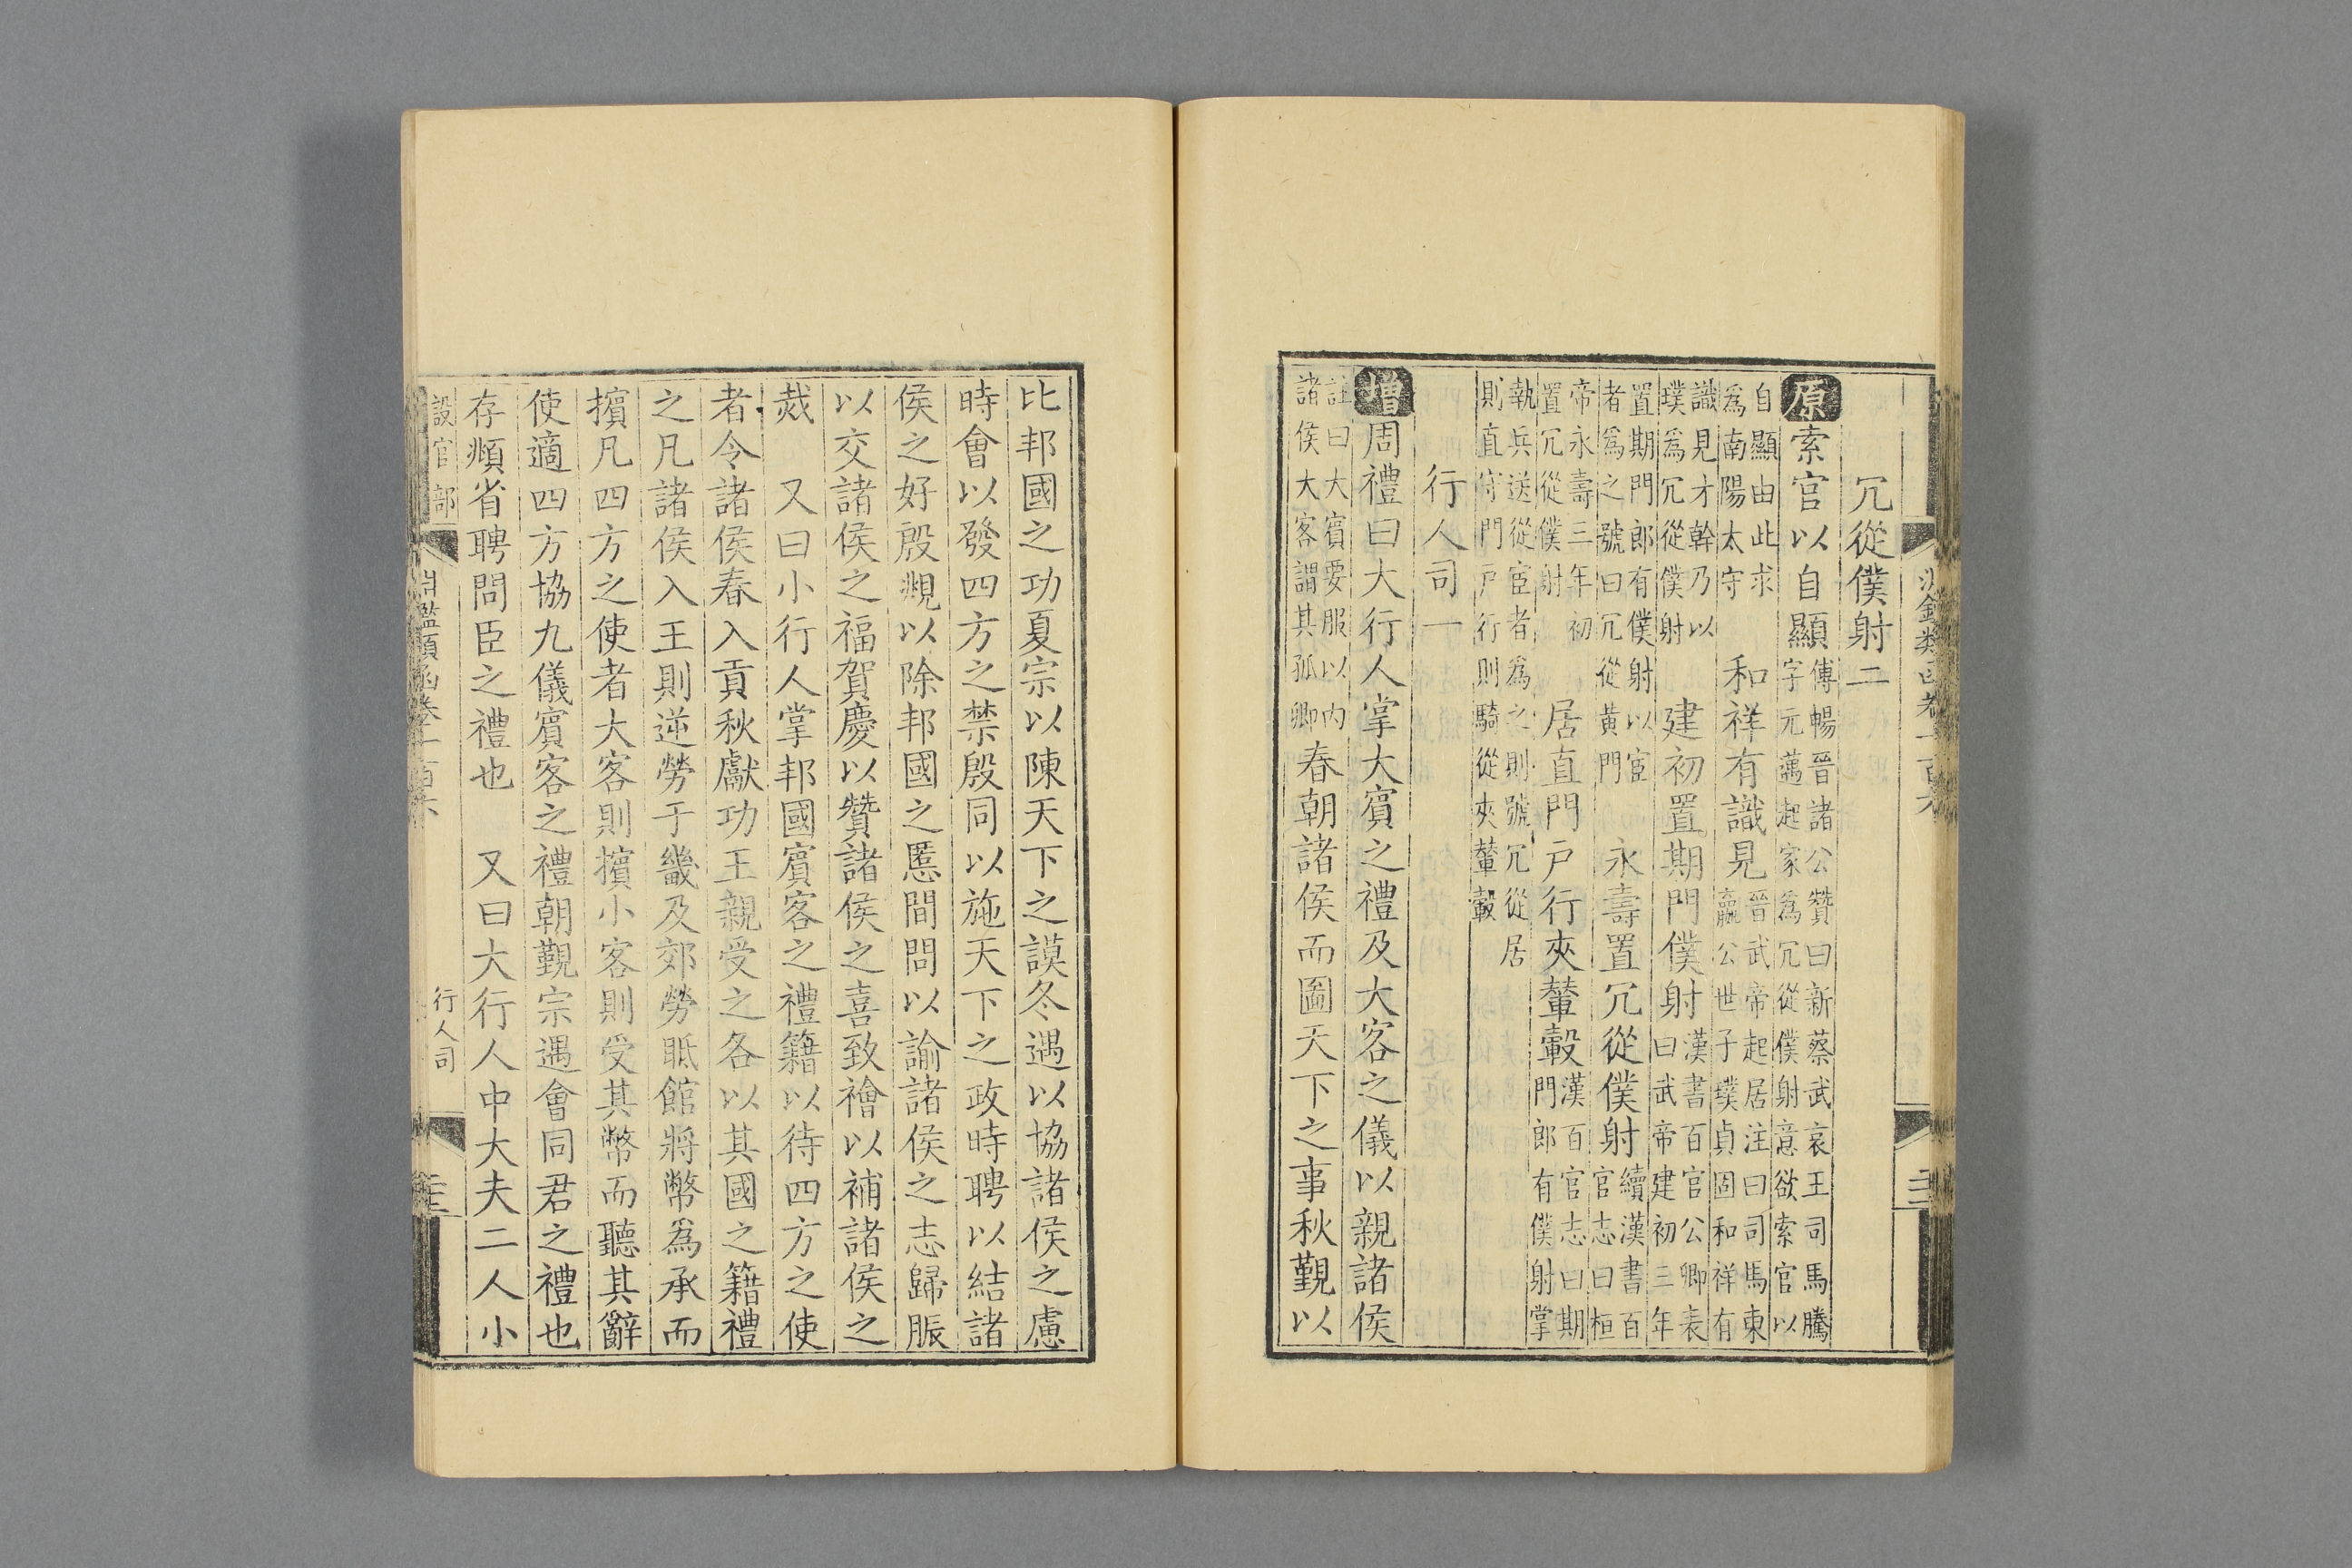 冗從僕射二
原索官以自顯傅暢晉諸公贊曰新蔡武哀王司馬騰字元邁起家爲冗從僕射意欲索官以
自顯由此求爲南陽太守　和祥有識見晉武帝起居注曰司馬東嬴公世子璞貞固和祥有
識見才幹乃以璞爲冗從僕射　建初置期門僕射漢書百官公卿表曰武帝建初三年
置期門郎有僕射以宦者爲之號曰冗從黃門　永壽置冗從僕射續漢書百官志曰桓
帝永壽三年初置冗從僕射　居直門戶行夾輦轂漢百官志曰期門郎有僕射掌
執兵送從宦者爲之則號冗從居則直守門戶行則騎從夾輦轂
行人司一
增周禮曰大行人掌大賓之禮及大客之儀以親諸侯
註曰大賓要服以內諸侯大客謂其孤卿春朝諸侯而圖天下之事秋覲以
比邦國之功夏宗以陳天下之謨冬遇以協諸侯之慮
時會以發四方之禁殷同以施天下之政時聘以結諸
侯之好殷覜以除邦國之慝間問以諭諸侯之志歸脤
以交諸侯之福賀慶以贊諸侯之喜致禬以補諸侯之
烖　又曰小行人掌邦國賓客之禮籍以待四方之使
者令諸侯春入貢秋獻功王親受之各以其國之籍禮
之凡諸侯入王則逆勞于畿及郊勞眡館將幣爲承而
擯凡四方之使者大客則擯小客則受其幣而聽其辭
使適四方協九儀賓客之禮朝覲宗遇會同君之禮也
存頫省聘問臣之禮也　又曰大行人中大夫二人小
設官部　淵鑑類函卷一百六　行人司